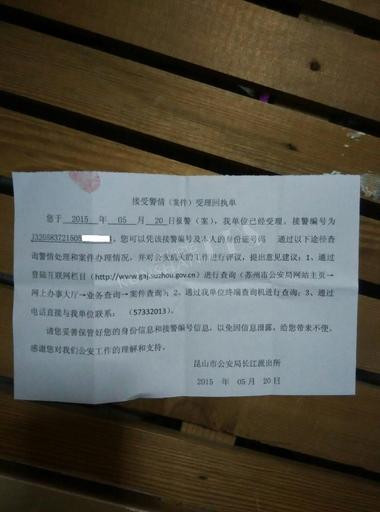 接受警情（案件）受理回执单
您于 2015 年 05 月 20 日报警（案），我单位已经受理。接警编号为
J320583721505，您可以凭该接警编号及本人的身份证号码 通过以下途径查
询警情处理和案件办理情况，并对公安机关的工作进行评议，提出意见建议：1、通过
登陆互联网栏目（http://www.gaj.suzhou.gov.cn）进行查询（苏州市公安局网站主页→
网上办事大厅→业务查询→案件查询）；2、通过我单位终端查询机进行查询；3、通过
电话直接与我单位联系： （57332013）。
请您妥善保管好您的身份信息和接警编号信息，以免因信息泄露，给您带来不便。
感谢您对我们公安工作的理解和支持。
昆山市公安局长江派出所
2015 年 05 月 20 日